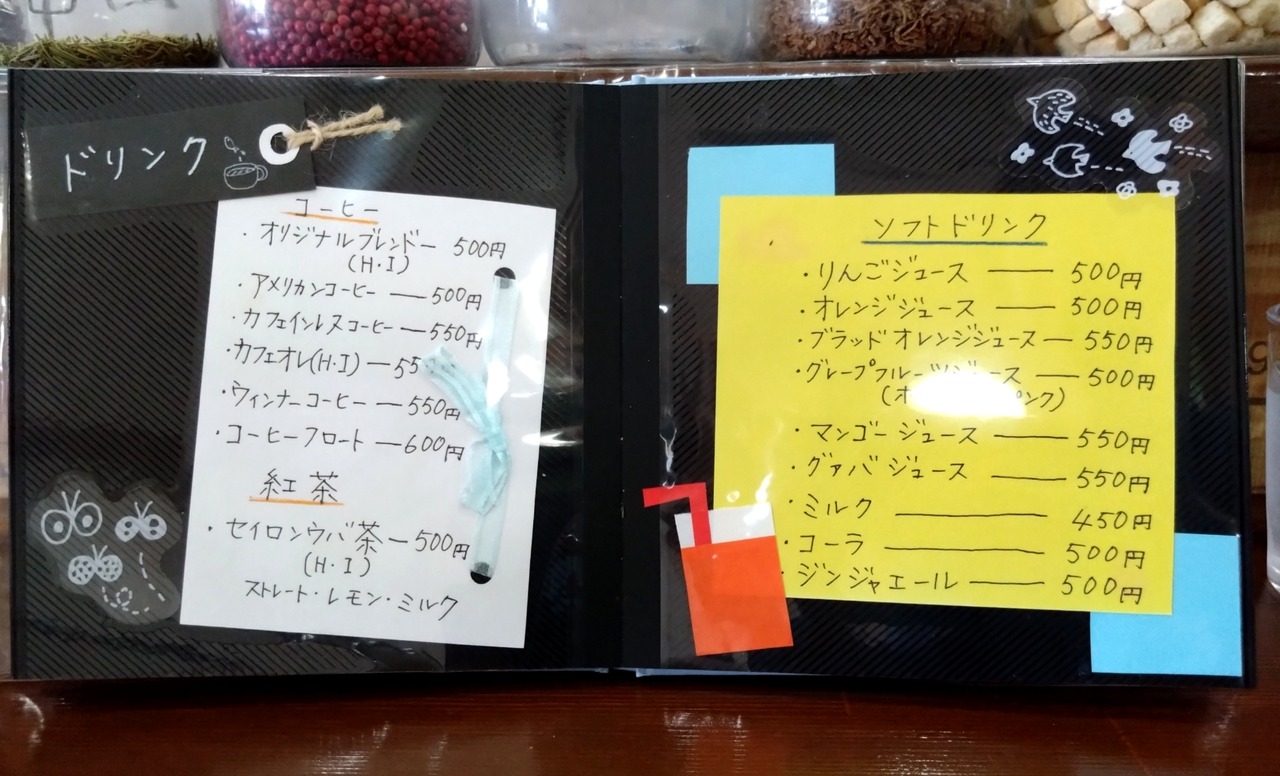 ドリンク
コーヒー
・オリジナルブレンドー 500円
(H・I)
・アメリカンコーヒー — 500円
・カフェインレスコーヒー — 550円
・カフェオレ(H・I) — 55
・ウィンナーコーヒー — 550円
・コーヒーフロート — 600円
紅茶
・セイロンウバ茶 — 500円
(H・I)
ストレート・レモン・ミルク
ソフトドリンク
・りんごジュース — 500円
・オレンジジュース — 500円
・ブラッドオレンジジュース — 550円
・グレープフルーツジュース — 500円
・マンゴージュース — 550円
・グァバジュース — 550円
・ミルク — 450円
・コーラ — 500円
・ジンジャエール — 500円